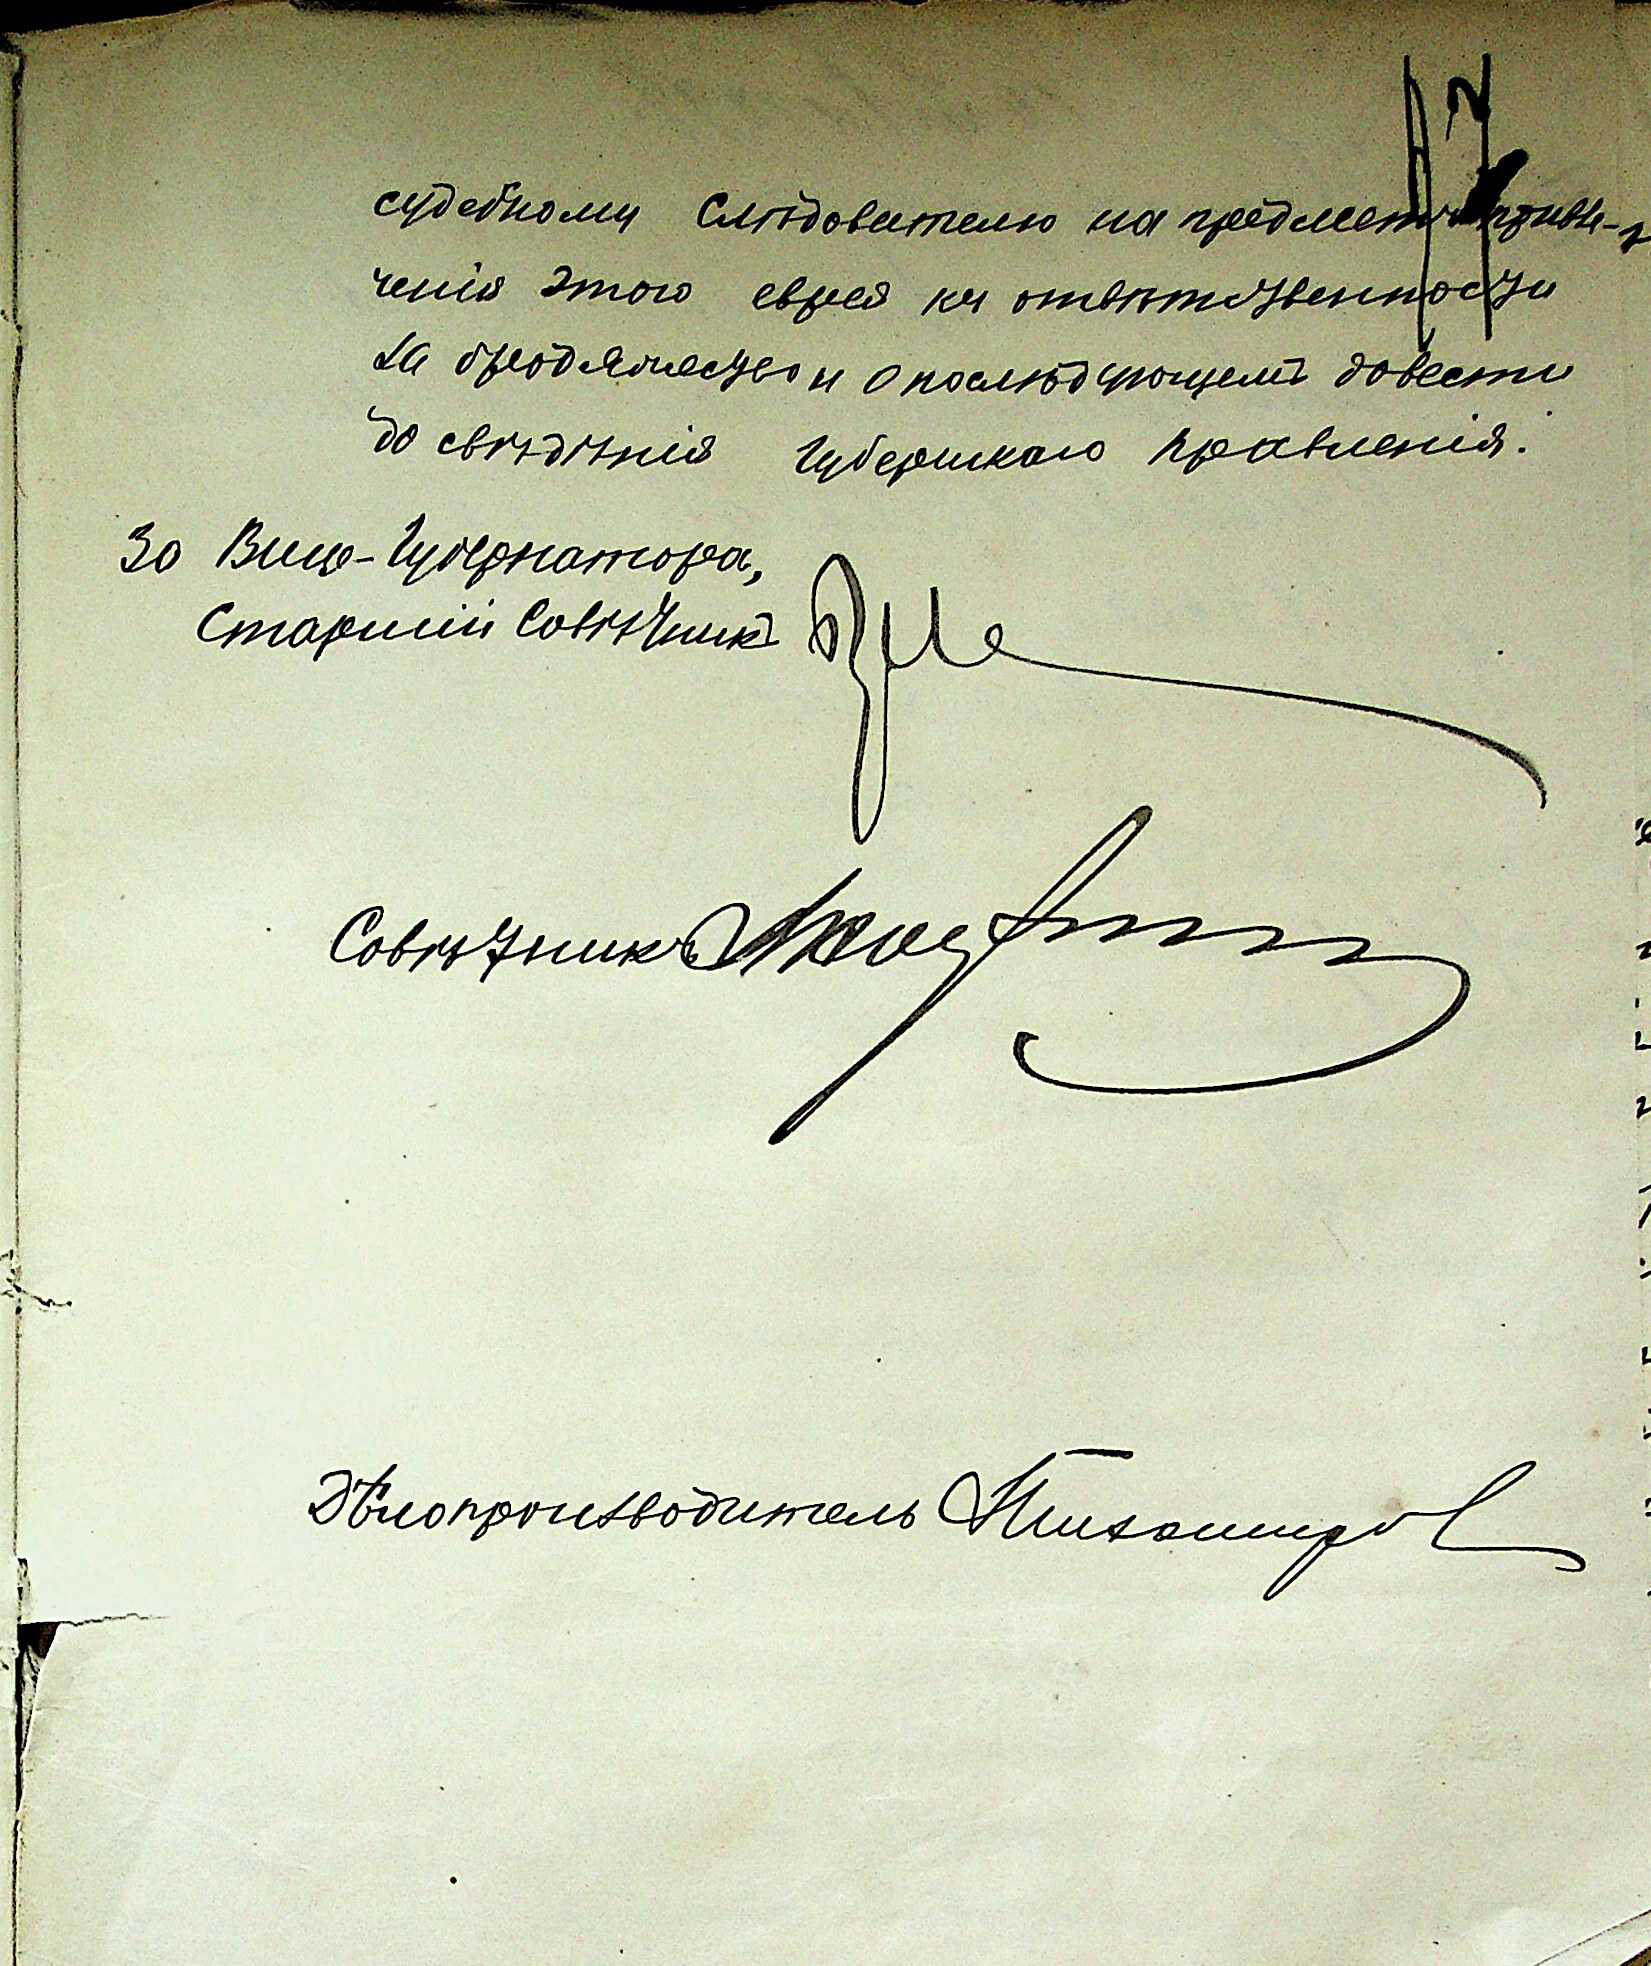 судебному Слѣдователю на предметъ привле-
ченія этого еврея къ отвѣтственности
за бродяжество и о послѣдующемъ довести
до свѣдѣнія Губернскаго Правленія.
За Вице-Губернатора,
Старшій Совѣтникъ
Совѣтникъ
Дѣлопроизводитель